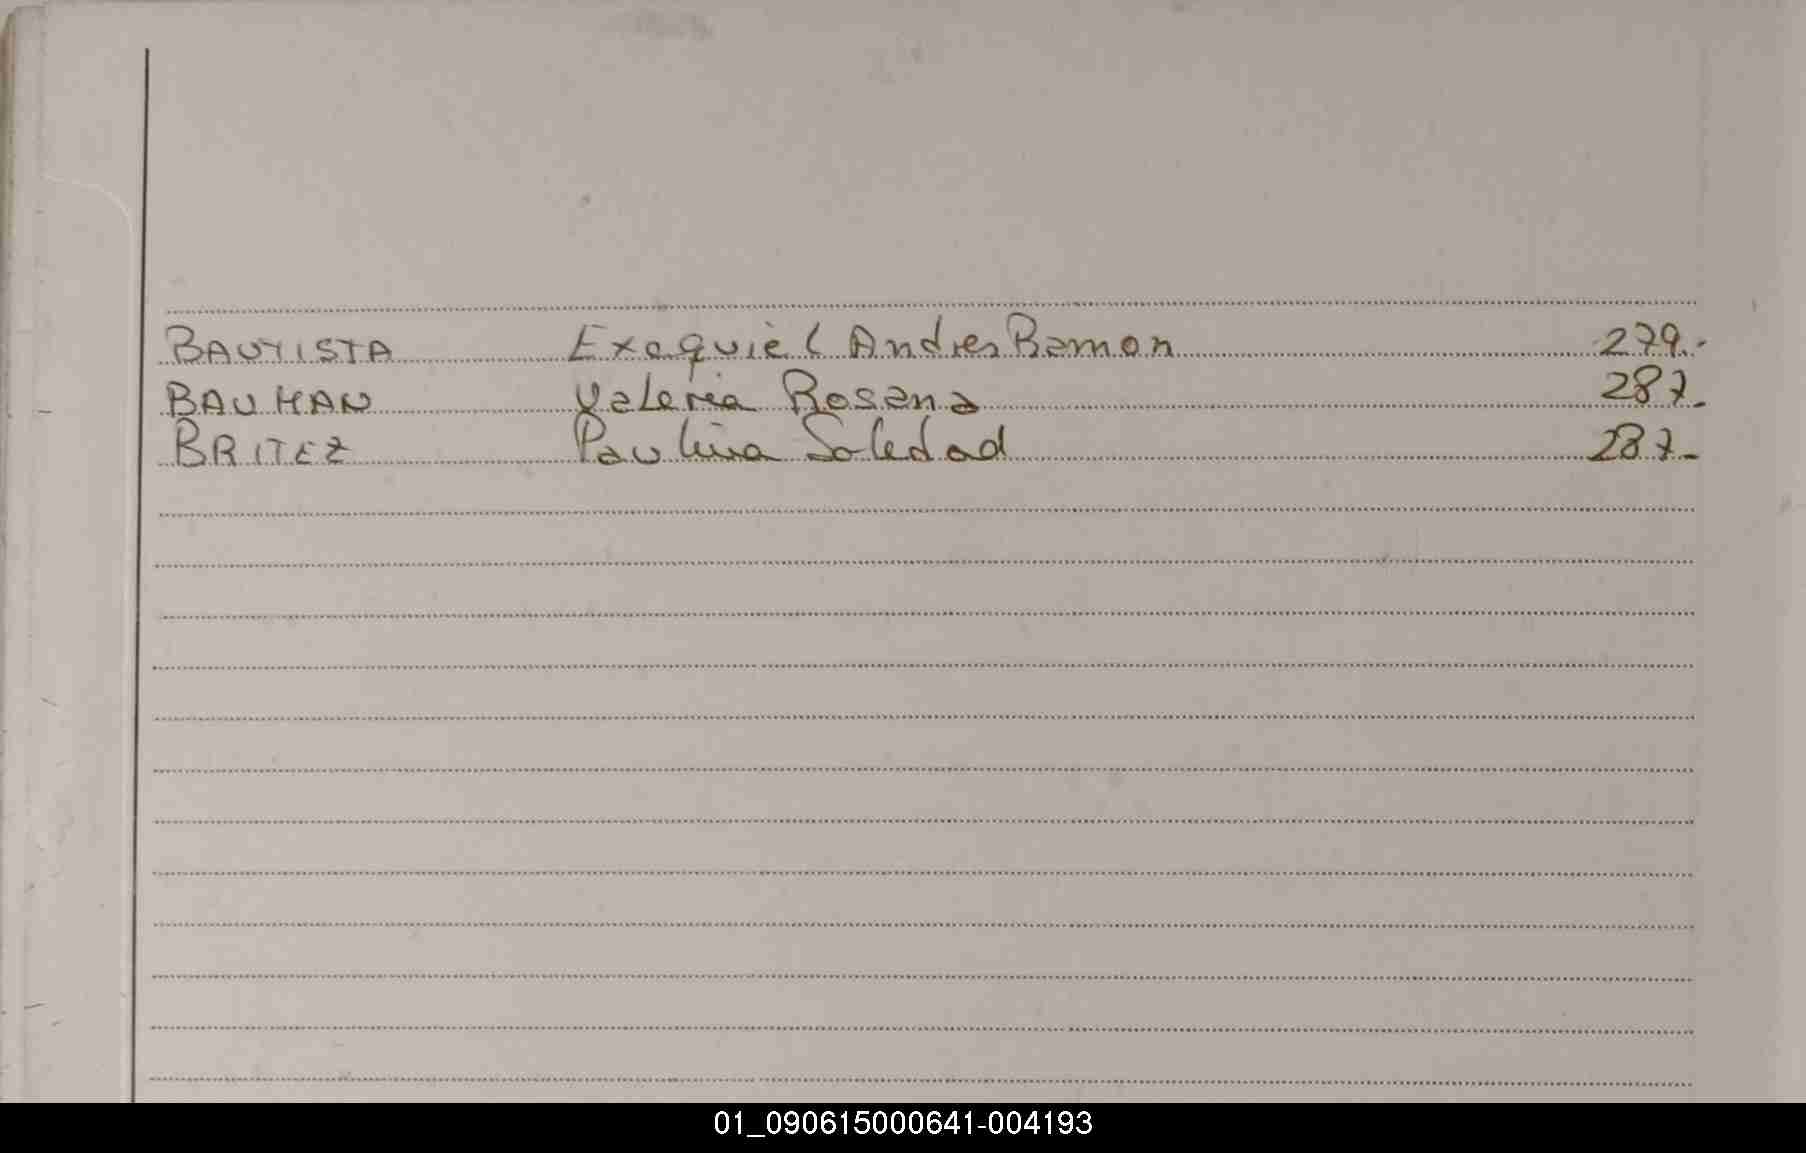 BAUTISTA Exequiel Andres Ramon 279.-
BAUMAN Valeria Rosana 287.-
BRITEZ Paulina Soledad 287.-
01_090615000641-004193